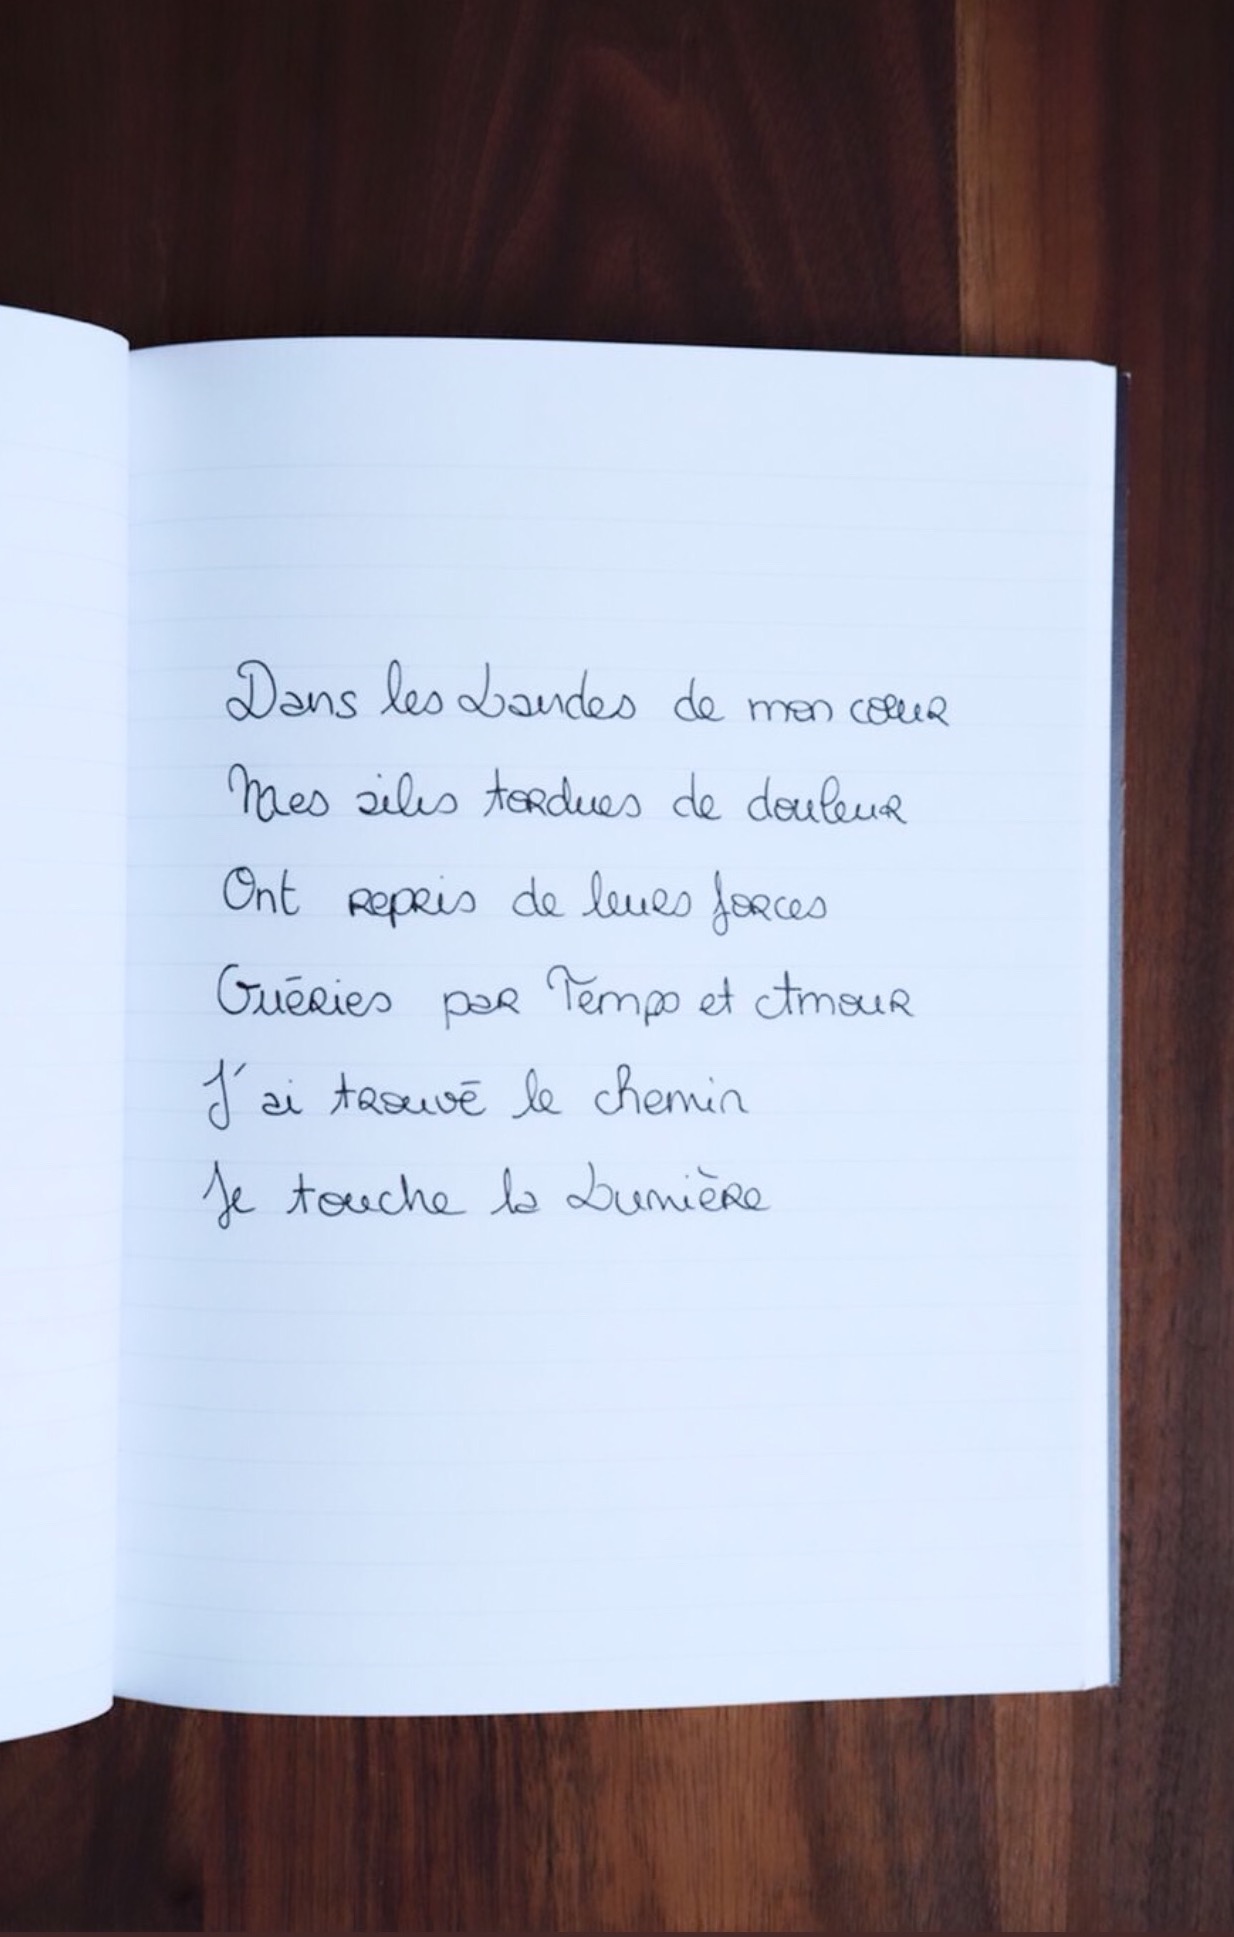 Dans les Landes de mon cœur
Mes ailes tordues de douleur
Ont repris de leurs forces
Guéries par Temps et Amour
J'ai trouvé le chemin
Je touche la Lumière